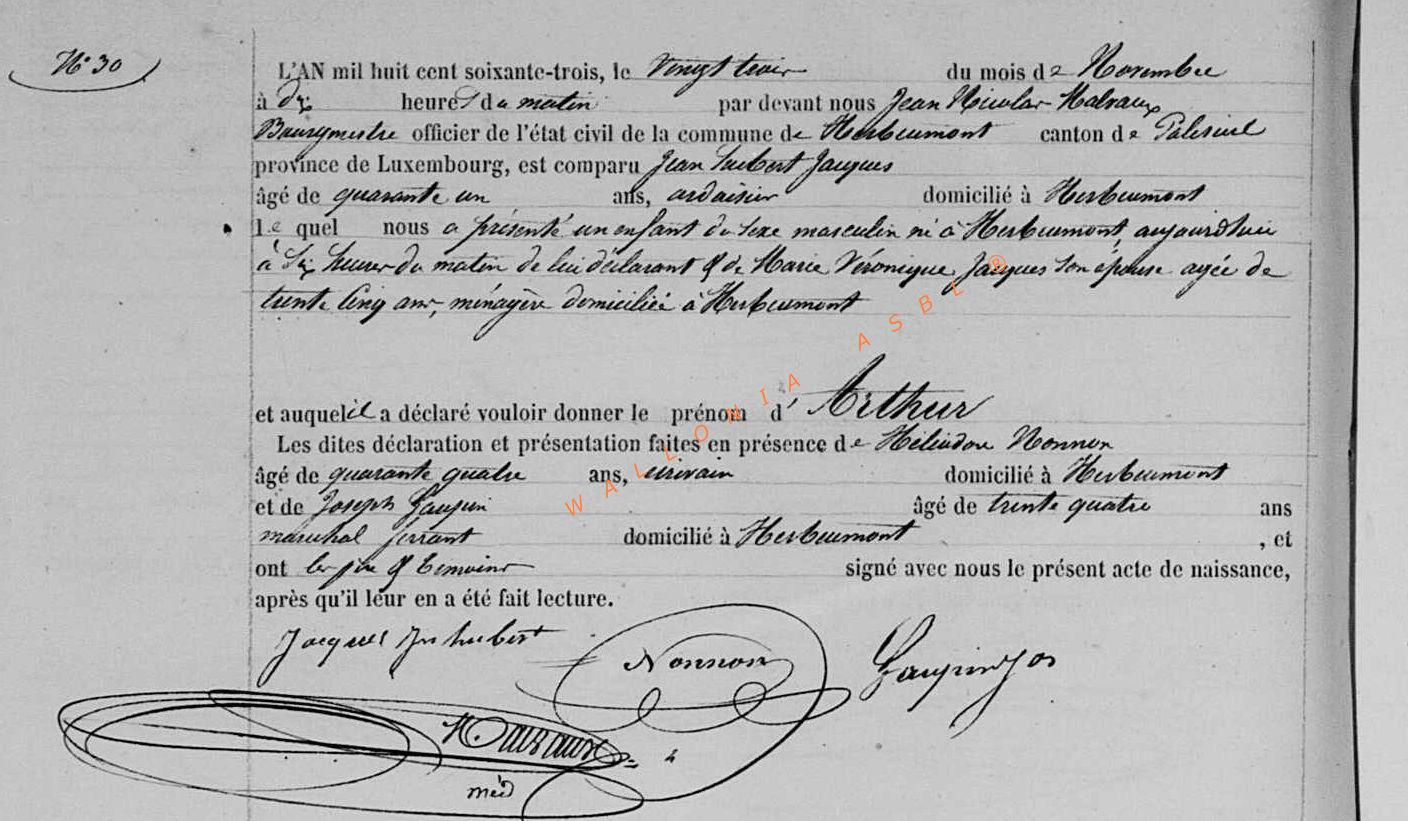 N° 30
L'AN mil huit cent soixante-trois, le vingt trois du mois de Novembre
à dix heures du matin par devant nous Jean Nicolas Malvaux
Bourgmestre officier de l'état civil de la commune de Herbeumont canton de Paliseul
province de Luxembourg, est comparu Jean hubert Jacques
âgé de quarante un ans, ardoisier domicilié à Herbeumont
le quel nous a présenté un enfant du sexe masculin né à Herbeumont, aujourd'hui
à six heures du matin de lui déclarant & de Marie Véronique Jacques son épouse agée de
trente cinq ans, ménagère domiciliée à Herbeumont
et auquel il a déclaré vouloir donner le prénom d' Arthur
Les dites déclaration et présentation faites en présence de Héliodore Nonnon
âgé de quarante quatre ans, écrivain domicilié à Herbeumont
et de Joseph Gaupin âgé de trente quatre ans
maréchal ferrant domicilié à Herbeumont , et
ont les père & témoins signé avec nous le présent acte de naissance,
après qu'il leur en a été fait lecture.
Jacques Jn hubert
Nonnon
Gaupin Jos
Malvaux
méd
WALLONIA ASBL ®